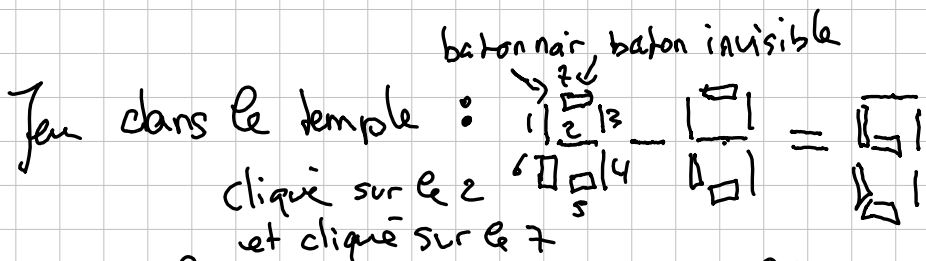 baton noir baton invisible
Jeu dans le temple : 1 7 2 3 6 5 4 - =
cliqué sur le 2
et cliqué sur le 7